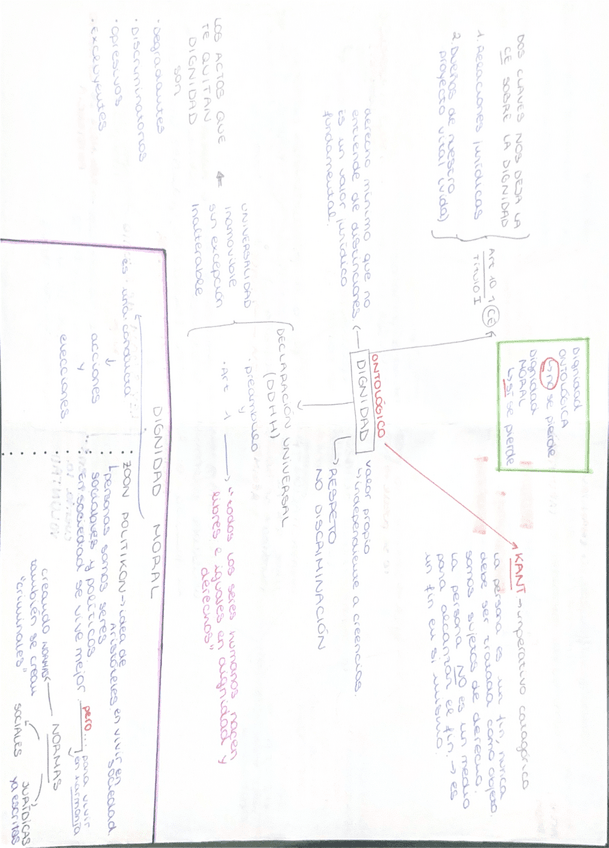 DOS CLAVES NOS DEJA LA
CE SOBRE LA DIGNIDAD
1 RELACIONES JURÍDICAS
2 DUEÑOS DE NUESTRO
proyecto vital (vida)
Art 10.1 CE
TÍTULO I
Dignidad
ONTOLÓGICA
↳ no se pierde
Dignidad
MORAL
↳ sí se pierde
KANT → imperativo categórico
la persona es un fin, nunca
debe ser tratada como objeto.
somos sujetos de derecho.
la persona NO es un medio
para alcanzar el fin → es
un fin en sí mismo
derecho mínimo que no
entiende de distinciones
es un valor jurídico
fundamental.
ONTOLÓGICO
DIGNIDAD
valor propio
independiente a creencias.
↳ RESPETO
NO DISCRIMINACIÓN
DECLARACIÓN UNIVERSAL
(DDHH)
· preámbulo
y
· Art 1 → "todos los seres humanos nacen
libres e iguales en dignidad y
derechos"
UNIVERSALIDAD
inamovible
sin excepción
inalterable
LOS ACTOS QUE
TE QUITAN
DIGNIDAD
son
· degradantes
· discriminatorios
· opresivos
· excluyentes
DIGNIDAD MORAL
es una conducta
↓
acciones
y
elecciones
· ZOON POLITIKON → idea de
Aristóteles en vivir en
sociedad
↳ personas somos seres
sociables y políticos.
en sociedad se vive mejor
pero... para vivir
en harmonía
NORMAS
creando normas
también se crean
"criminales"
SOCIALES
JURÍDICAS
ya escritas